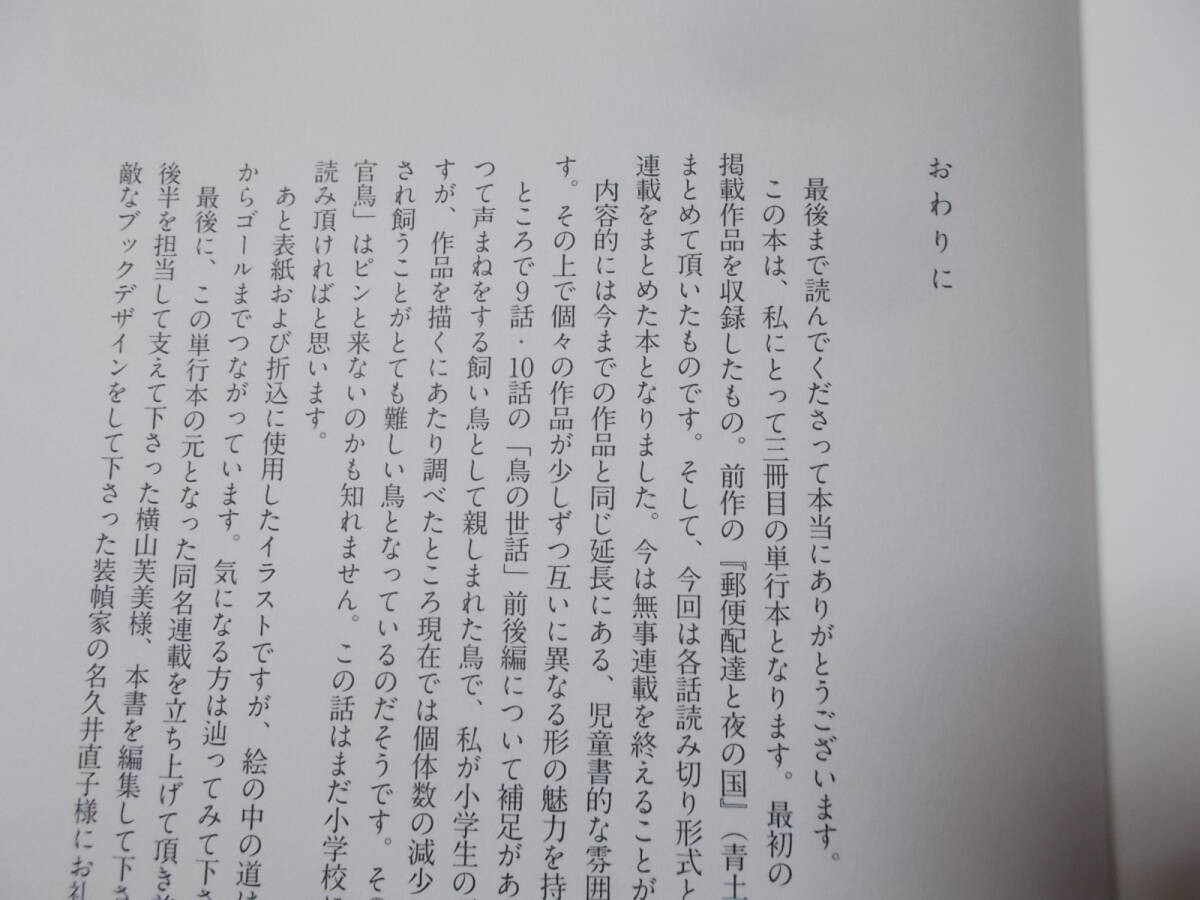 おわりに
最後まで読んでくださって本当にありがとうございます。
この本は、私にとって三冊目の単行本となります。最初の
掲載作品を収録したもの。前作の『郵便配達と夜の国』（青土
まとめて頂いたものです。そして、今回は各話読み切り形式と
連載をまとめた本となりました。今は無事連載を終えることが
内容的には今までの作品と同じ延長にある、児童書的な雰囲
す。その上で個々の作品が少しずつ互いに異なる形の魅力を持
ところで9話・10話の「鳥の世話」前後編について補足があ
つて声まねをする飼い鳥として親しまれた鳥で、私が小学生の
すが、作品を描くにあたり調べたところ現在では個体数の減少
され飼うことがとても難しい鳥となっているのだそうです。その
官鳥」はピンと来ないのかも知れません。この話はまだ小学校
読み頂ければと思います。
あと表紙および折込に使用したイラストですが、絵の中の道は
からゴールまでつながっています。気になる方は辿ってみて下さ
最後に、この単行本の元となった同名連載を立ち上げて頂き
後半を担当して支えて下さった横山芙美様、本書を編集して下さ
敵なブックデザインをして下さった装幀家の名久井直子様にお礼